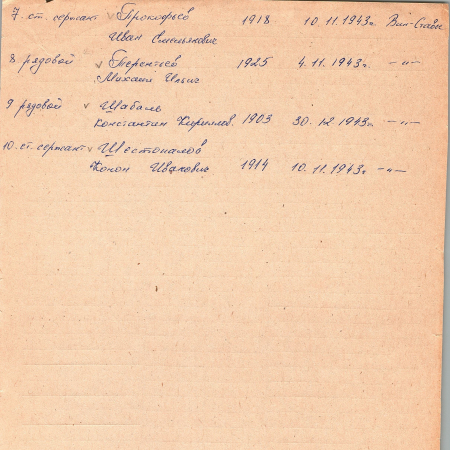 7. ст. сержант v Прокофьев 1918 10.11.1943г. Вип-Ставы
Иван Емельянович
8 рядовой v Терентьев 1925 4.11.1943г. -"-
Михаил Ильич
9 рядовой v Шабаль
Константин Кириллов. 1903 30.12.1943г. -"-
10. ст. сержант v Шестопалов
Конон Иванович 1914 10.11.1943г. -"-